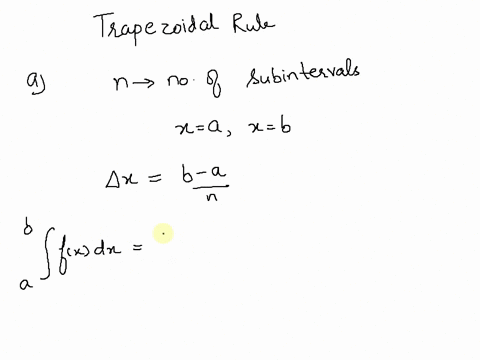 Trapezoidal Rule
a) n → no. of subintervals
x = a, x = b
Δx = (b - a)/n
∫_a^b f(x) dx =